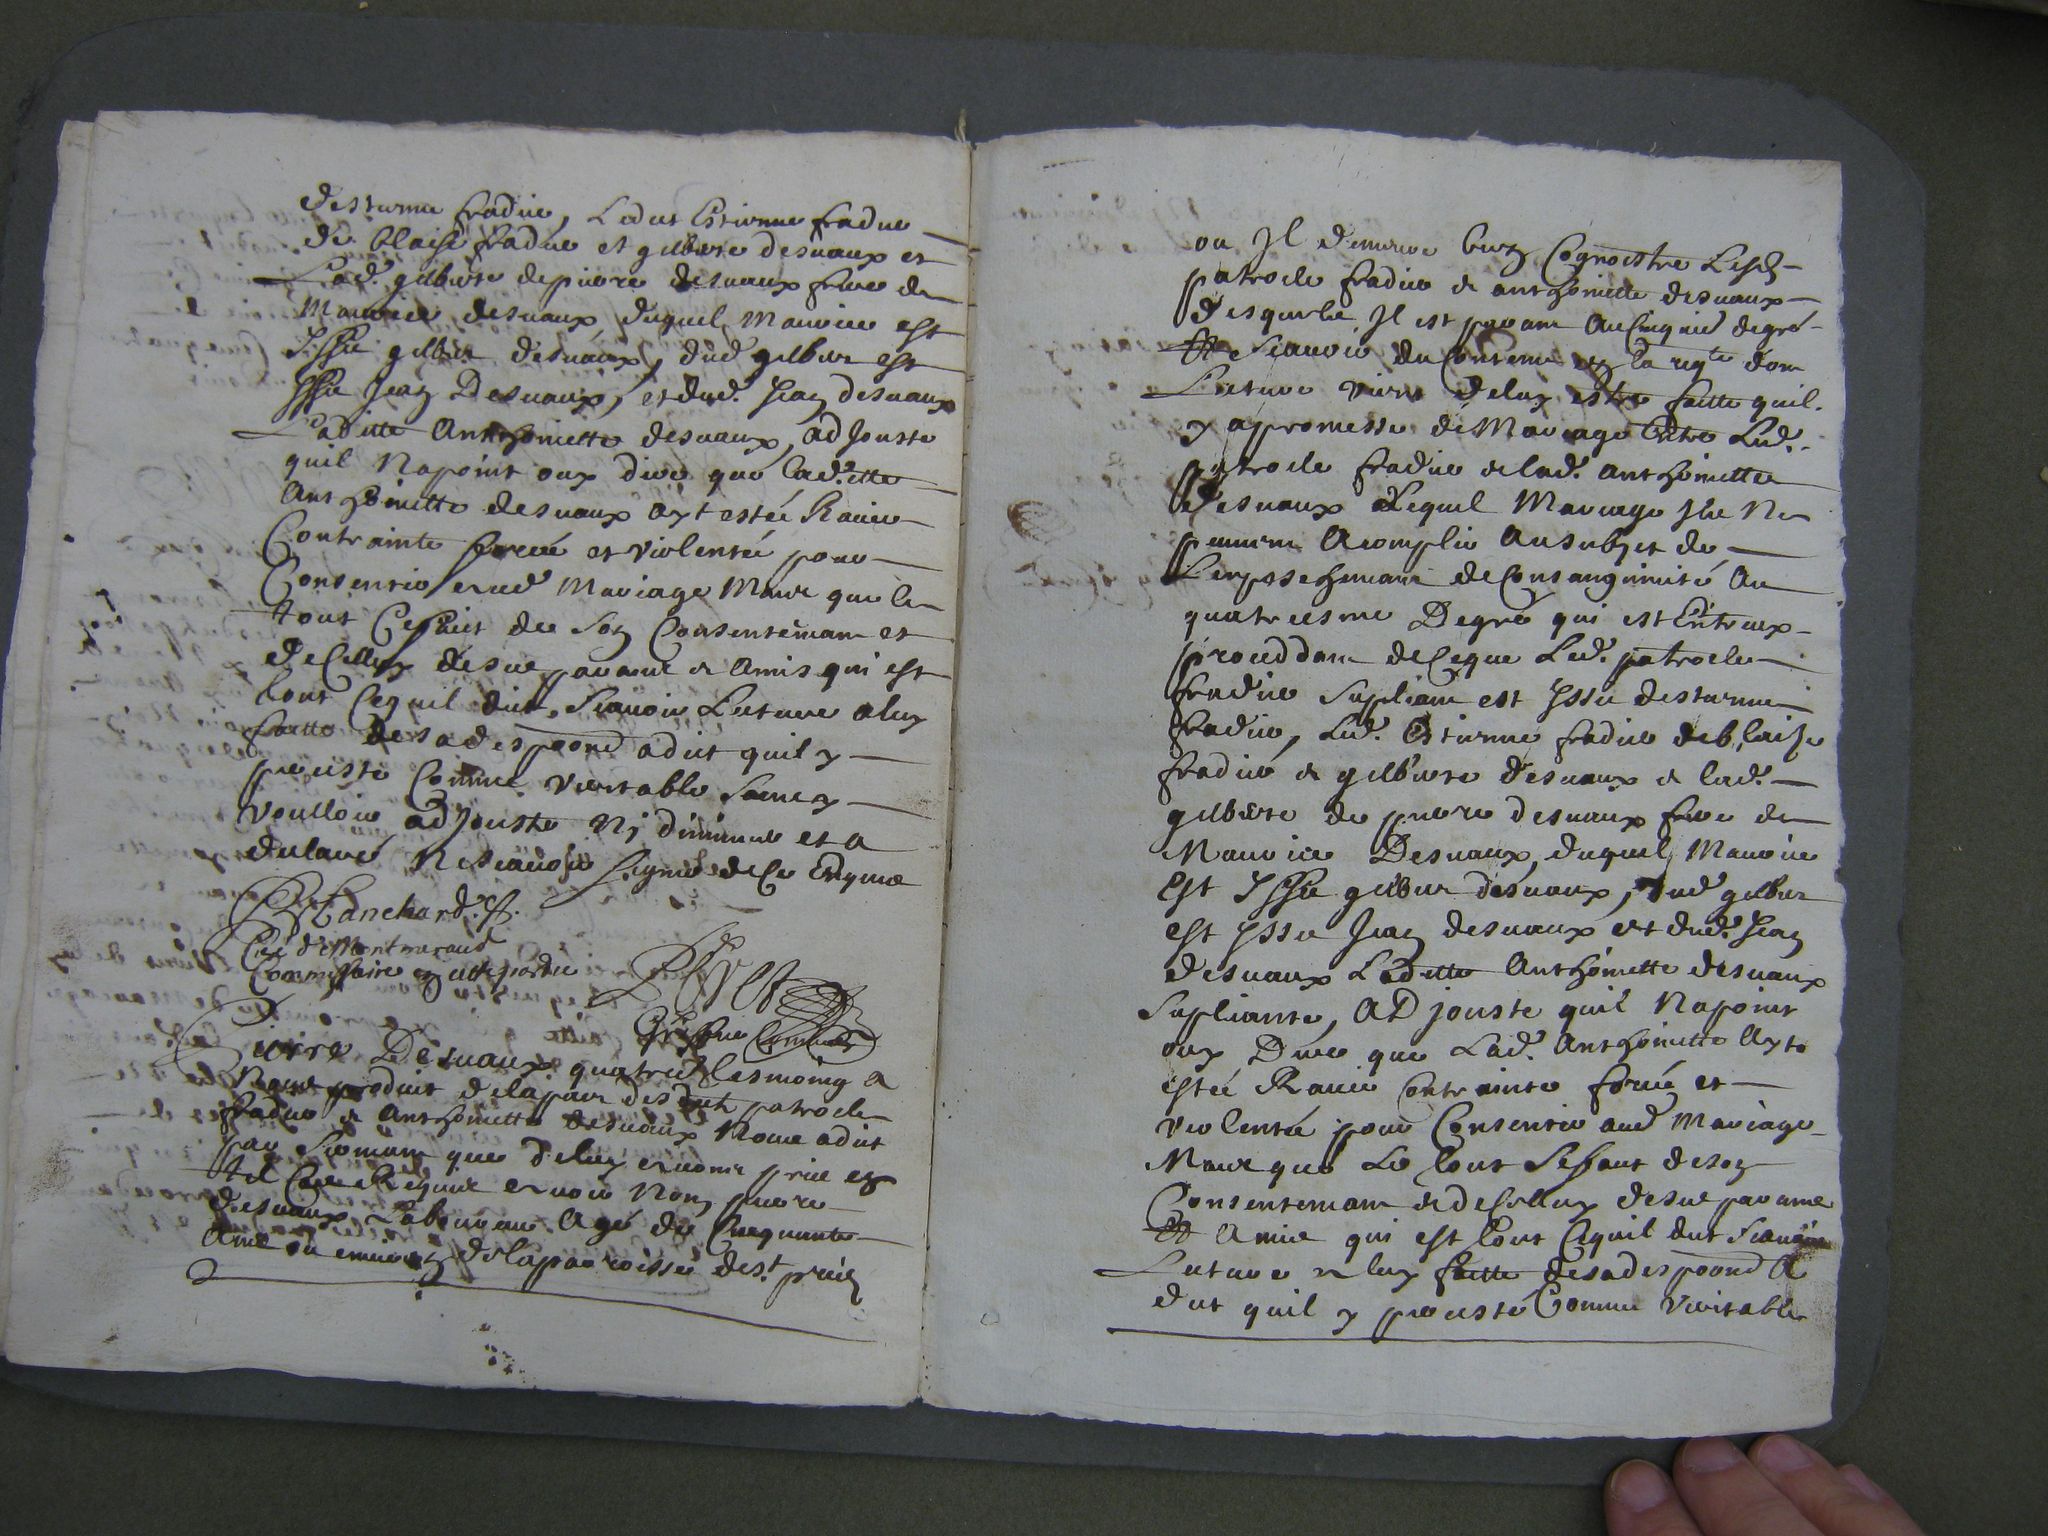 destienne fradue, Ledict Estienne fradue
de blaise fradue et gilberte desuaux et
Lad. gilberte de pierre desuaux frere de
Maurice desuaux, duquel Maurice est
Issu gilbert desuaux, dud gilbert est
Issu Jean Desuaux, et dud. Jean desuaux
Laditte Anthoinette desuaux, adjouste
quil Napoint ouy dire que lad.ette
Anthoinette desuaux ayt estée Ravie
Contrainte forcée et violentée pour
Consentir aud Mariage Mais que le
tout Cest faict de son Consentemant et
de Celluy de ses parans & Amis qui est
tout Cequil dict, Scauoir Lecture a luy
faitte de sa desposon a dict quil y
preciste Comme veritable Sans y
voulloir adjouste Ny diminuer et a
declaré Ne scauoir signer de Ce Enquis
Blanchard
Curé de Montmaraud
Commissaire en cette partie
Greffier Commis
Pierre Desuaux quatrie tesmoing a
Nous produit de la part desdict patrocle
fradue & Anthoinette desuaux Nous a dict
par sermant que de luy auons prins en
tel Cas Requis auoir Nom pierre
desuaux Laboureur Agé de Cinquante
Ans ou enuiron de la parroisse de st. priest
ou Il demeure bien Cognoistre Lesd
patrocle fradue & anthoinette desuaux
desquels Il est parant Au Cinquie degré
Et Scauoir du Contenu en la reqte dont
Lecture vient de luy estre faitte quil
y a promesse de Mariage Entre Led.
patrocle fradue & lad. anthoinette
desuaux Lequel Mariage Ils Ne
peuuent Acomplir Au subject de
Lempeschemant de Consanguinité Au
quatriesme Degré qui est Entreux
proueddant de Ceque Led. patrocle
fradue supliant est Issu destienne
fradue, Led. Estienne fradue de blaise
fradue & gilberte desuaux & lad.
gilberte de pierre desuaux frere de
Maurice Desuaux, duquel Maurice
Est Issu gilbert desuaux, dud gilbert
est Issu Jean desuaux et dud. Jean
desuaux Laditte Anthoinette desuaux
supliante, ADjouste quil Napoint
ouy Dire que Lad. Anthoinette Ayte
estée Ravie Contrainte forcée et
violentée pour Consentir aud Mariage
Mais que Le tout Sest faict de son
Consentemant & de Celluy de ses parans
Et Amis qui est tout Cequil dict Scauoir
Lecture a luy faitte de sa desposon A
dict quil y preciste Comme Veritable